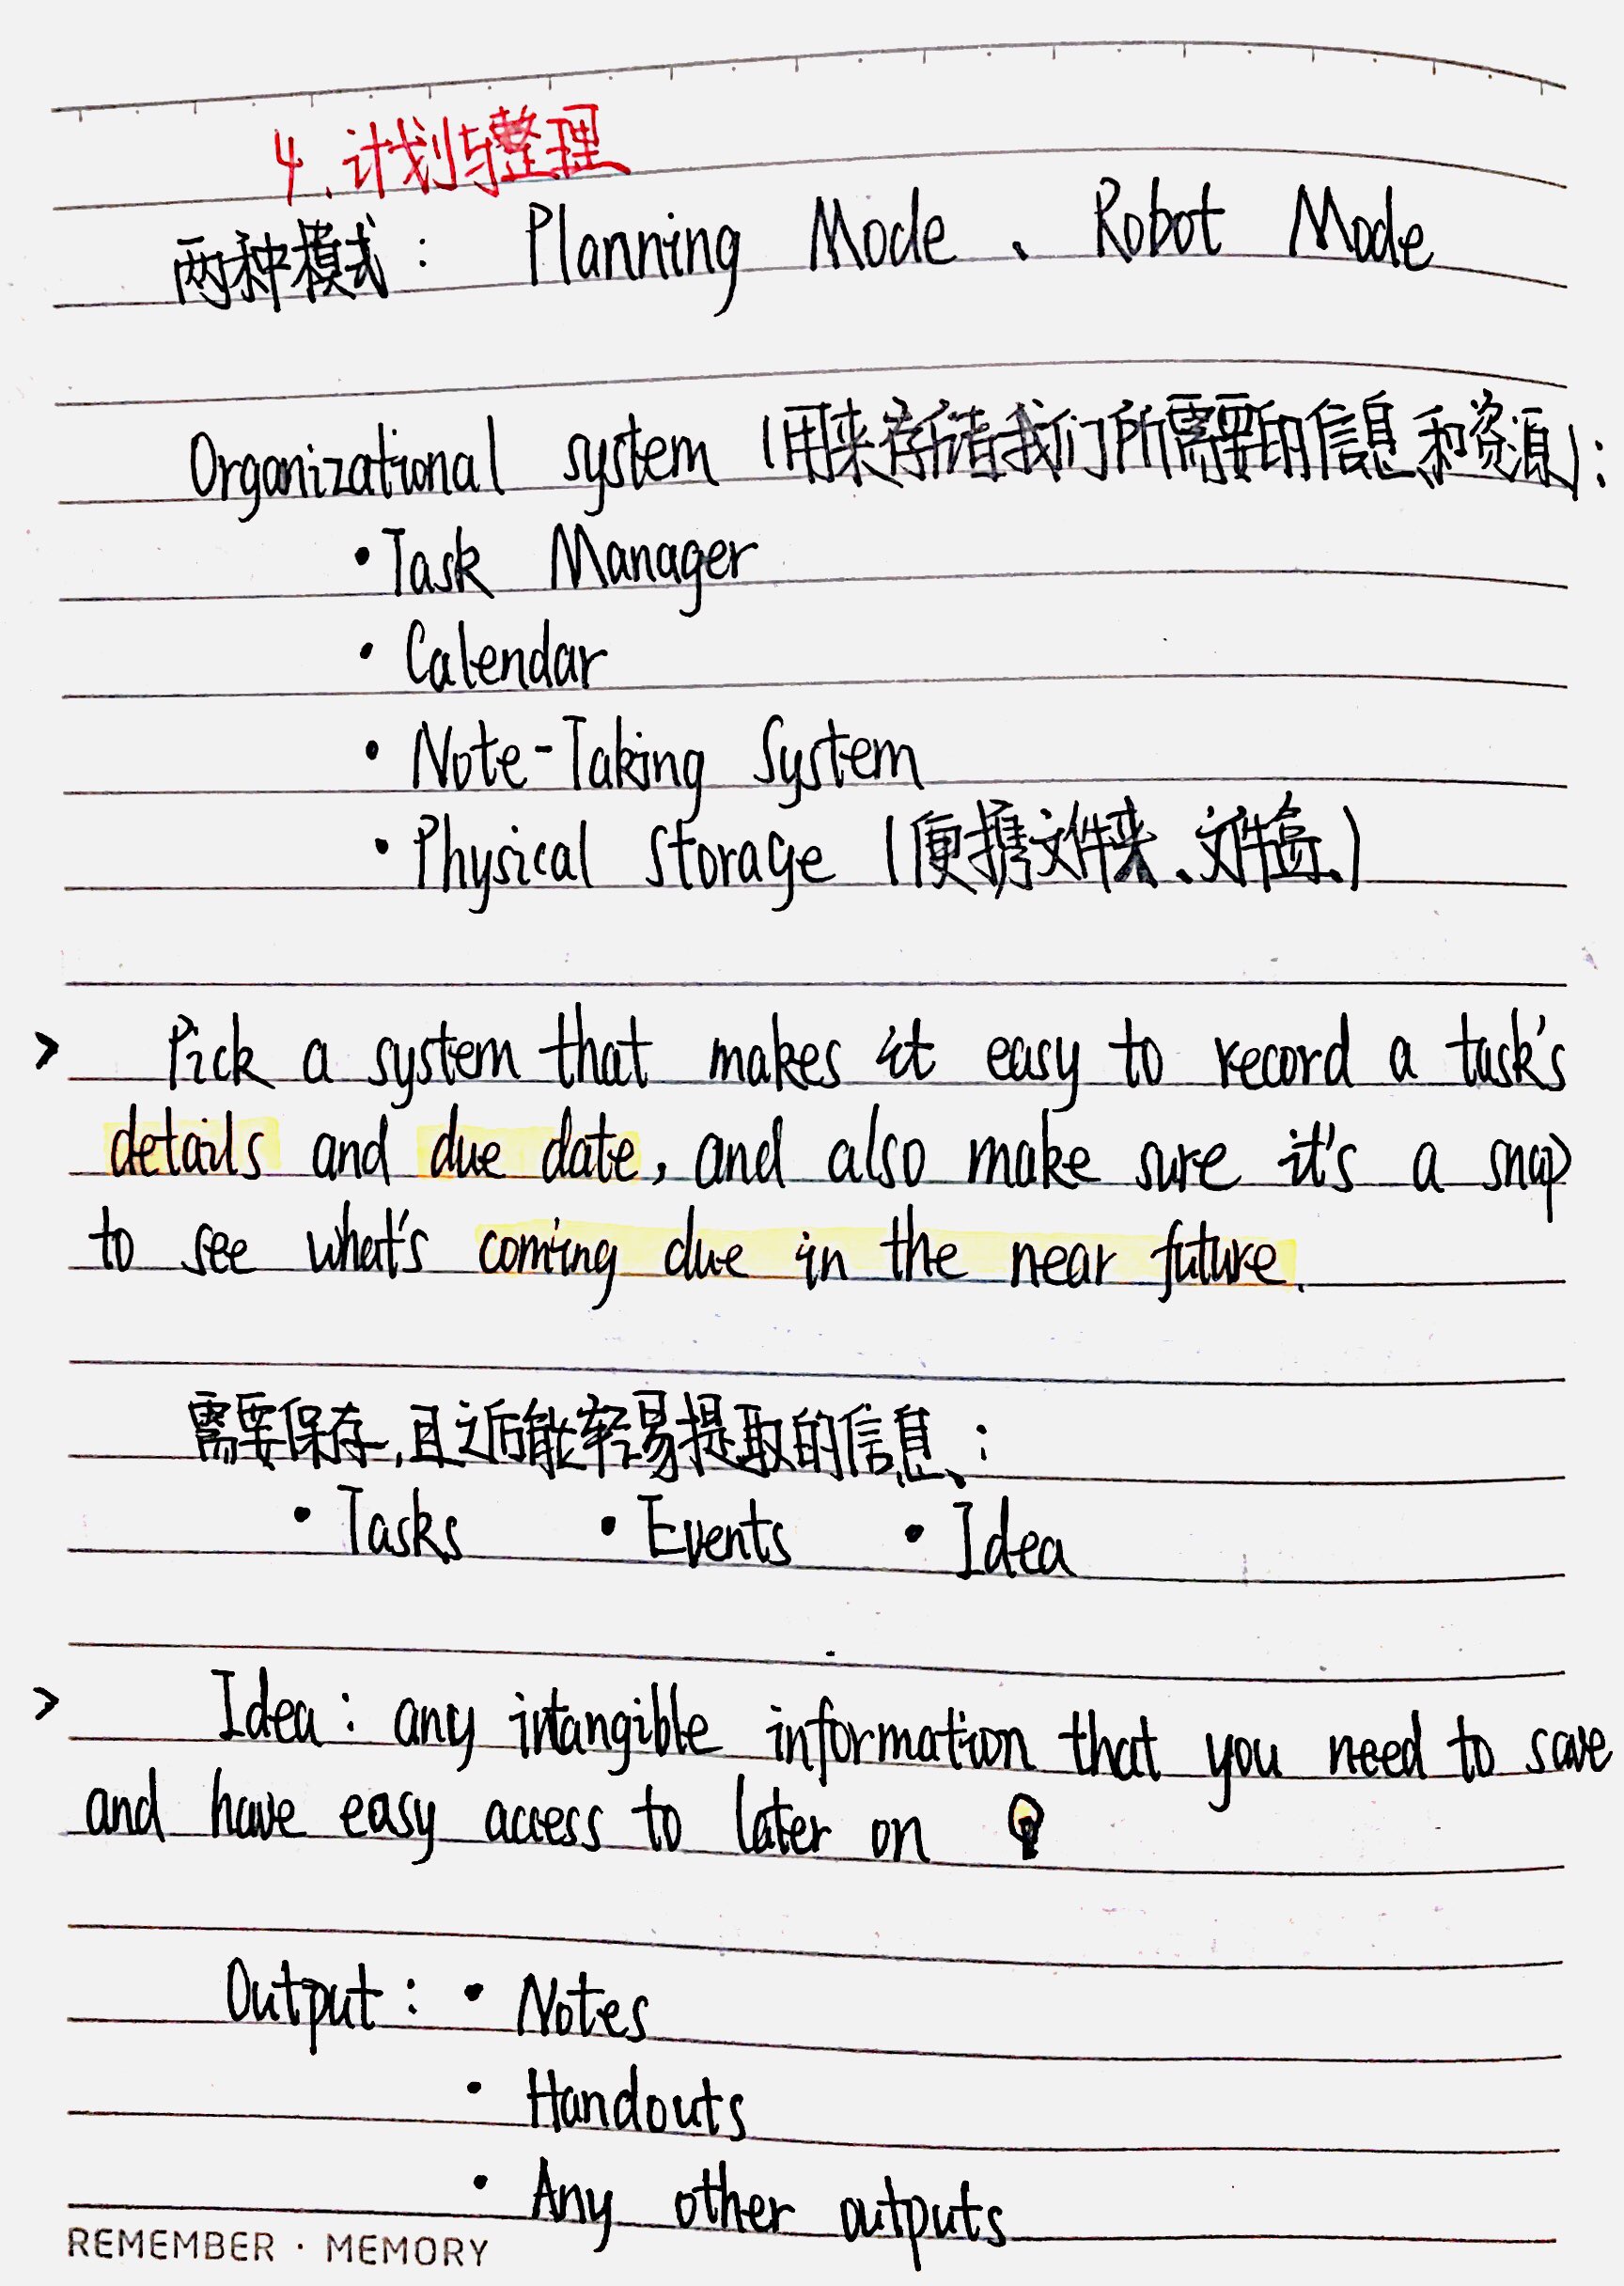 4. 计划与整理
两种模式： Planning Mode、Robot Mode
Organizational system (用来存储我们所需要的信息和资源)：
• Task Manager
• Calendar
• Note-Taking System
• Physical Storage (便携文件夹、文件盒)
> Pick a system that makes it easy to record a task's
details and due date, and also make sure it's a snap
to see what's coming due in the near future.
需要保存,且之后能轻易提取的信息：
• Tasks • Events • Idea
> Idea: any intangible information that you need to save
and have easy access to later on
Output: • Notes
• Handouts
• Any other outputs
REMEMBER · MEMORY